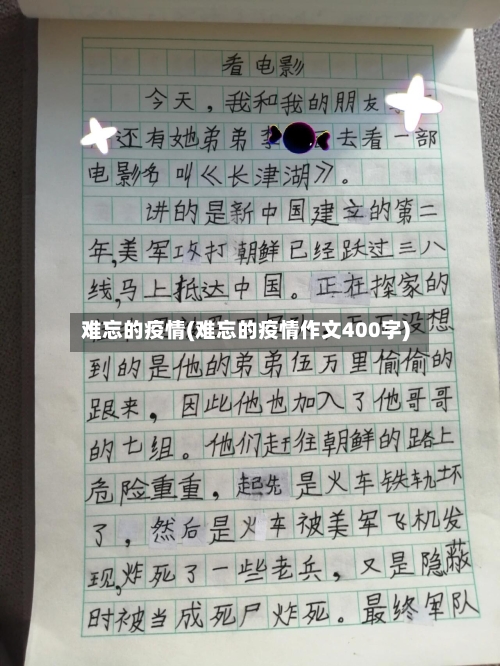 看电影
今天，我和我的朋友
还有她弟弟李 去看一部
电影名叫《长津湖》。
讲的是新中国建立的第二
年,美军攻打朝鲜已经跃过三八
线,马上抵达中国。正在探家的
难忘的疫情(难忘的疫情作文400字)
没想
到的是他的弟弟伍万里偷偷的
跟来，因此他也加入了他哥哥
的七组。他们赶往朝鲜的路上
危险重重，起先是火车铁轨坏
了，然后是火车被美军飞机发
现,炸死了一些老兵，又是隐蔽
时被当成死尸炸死。最终军队